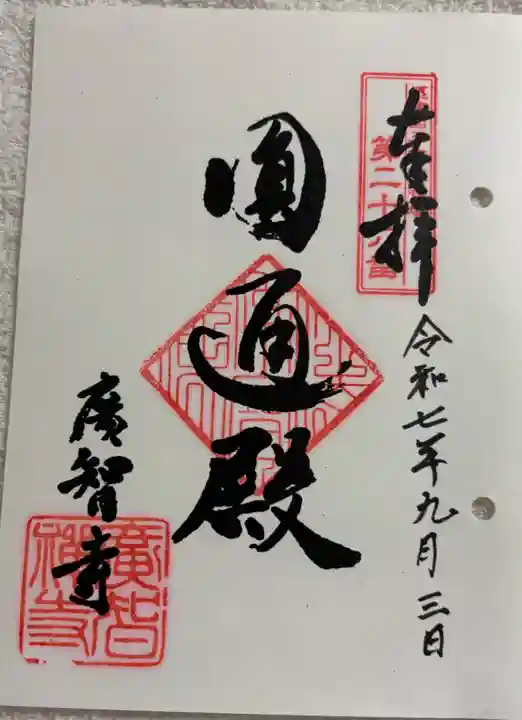 奉拝
第二十八番
令和七年九月三日
圓通殿
廣智寺
廣智禅寺